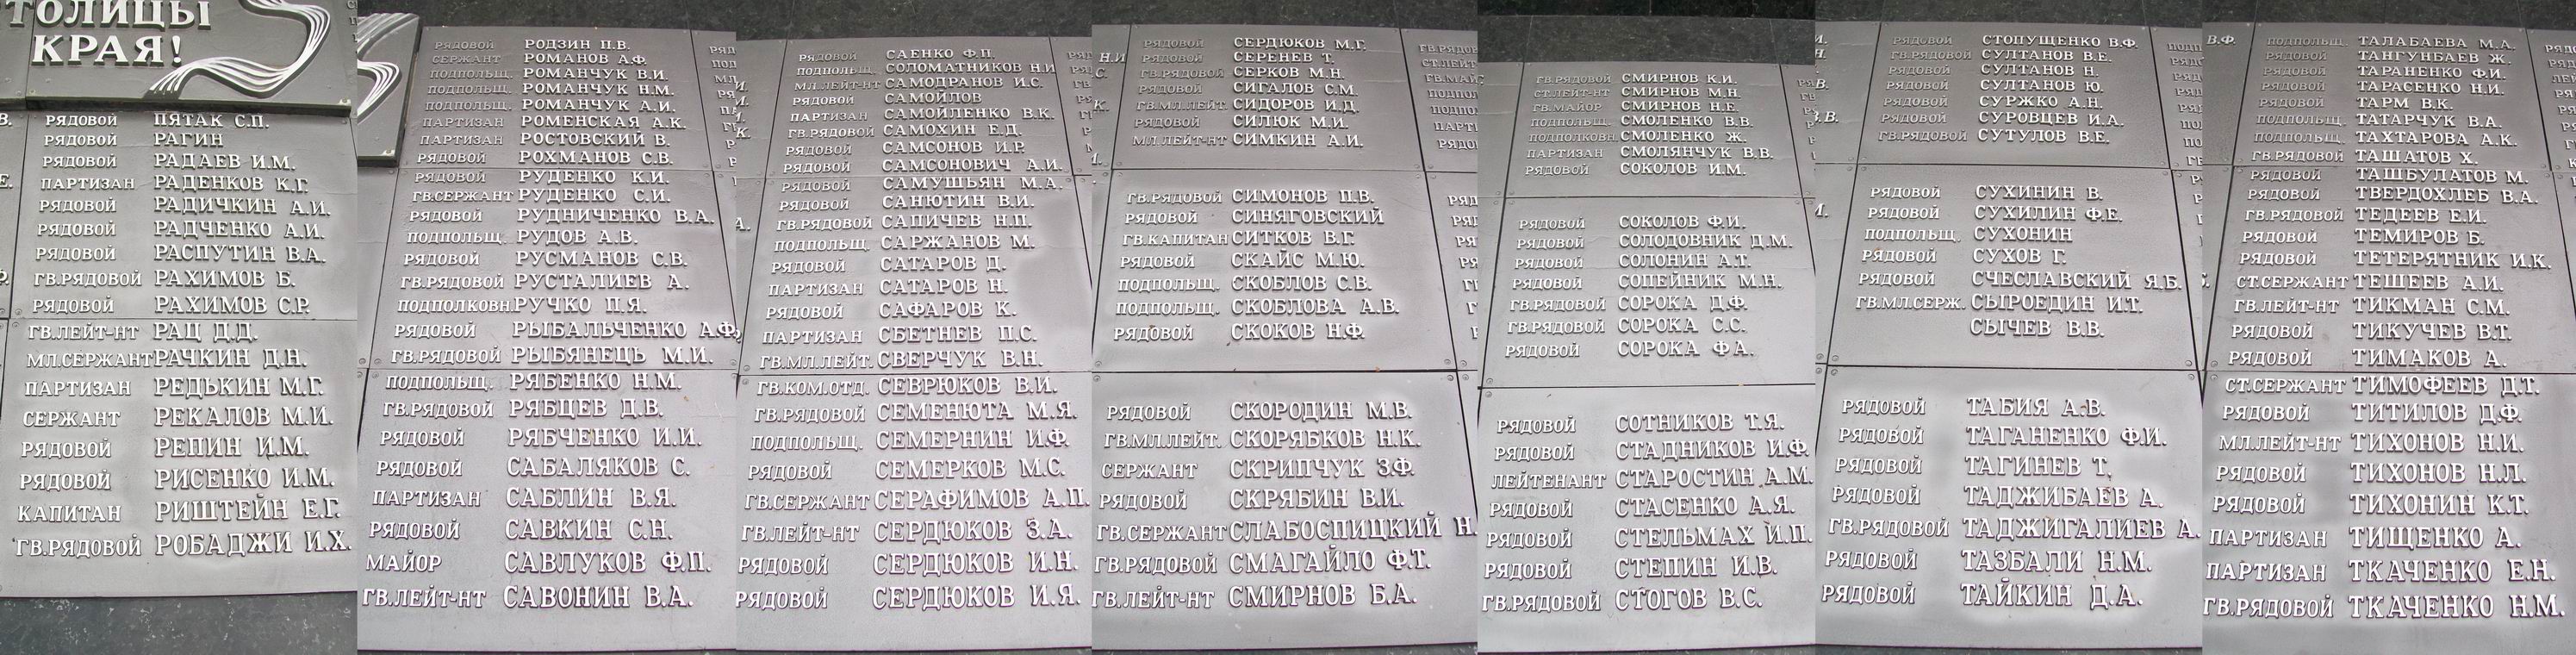 ТОЛИЦЫ
КРАЯ!
РЯДОВОЙ ПЯТАК С.П.
РЯДОВОЙ РАГИН
РЯДОВОЙ РАДАЕВ И.М.
ПАРТИЗАН РАДЕНКОВ К.Г.
РЯДОВОЙ РАДИЧКИН А.И.
РЯДОВОЙ РАДЧЕНКО А.И.
РЯДОВОЙ РАСПУТИН В.А.
ГВ.РЯДОВОЙ РАХИМОВ Б.
РЯДОВОЙ РАХИМОВ С.Р.
ГВ.ЛЕЙТ-НТ РАЦ Д.Д.
МЛ.СЕРЖАНТ РАЧКИН Д.Н.
ПАРТИЗАН РЕДЬКИН М.Г.
СЕРЖАНТ РЕКАЛОВ М.И.
РЯДОВОЙ РЕПИН И.М.
РЯДОВОЙ РИСЕНКО И.М.
КАПИТАН РИШТЕЙН Е.Г.
ГВ.РЯДОВОЙ РОБАДЖИ И.Х.
РЯДОВОЙ РОДЗИН П.В.
СЕРЖАНТ РОМАНОВ А.Ф.
ПОДПОЛЬЩ. РОМАНЧУК В.И.
ПОДПОЛЬЩ. РОМАНЧУК Н.М.
ПОДПОЛЬЩ. РОМАНЧУК А.И.
ПАРТИЗАН РОМЕНСКАЯ А.К.
ПАРТИЗАН РОСТОВСКИЙ В.
РЯДОВОЙ РОХМАНОВ С.В.
РЯДОВОЙ РУДЕНКО К.И.
ГВ.СЕРЖАНТ РУДЕНКО С.И.
РЯДОВОЙ РУДНИЧЕНКО В.А.
ПОДПОЛЬЩ. РУДОВ А.В.
РЯДОВОЙ РУСМАНОВ С.В.
ГВ.РЯДОВОЙ РУСТАЛИЕВ А.
ПОДПОЛКОВН. РУЧКО П.Я.
РЯДОВОЙ РЫБАЛЬЧЕНКО А.Ф.
ГВ.РЯДОВОЙ РЫБЯНЕЦЬ М.И.
ПОДПОЛЬЩ. РЯБЕНКО Н.М.
ГВ.РЯДОВОЙ РЯБЦЕВ Д.В.
РЯДОВОЙ РЯБЧЕНКО И.И.
РЯДОВОЙ САБАЛЯКОВ С.
ПАРТИЗАН САБЛИН В.Я.
РЯДОВОЙ САВКИН С.Н.
МАЙОР САВЛУКОВ Ф.П.
ГВ.ЛЕЙТ-НТ САВОНИН В.А.
РЯДОВОЙ САЕНКО Ф.П.
ПОДПОЛЬЩ. СОЛОМАТНИКОВ Н.И.
МЛ.ЛЕЙТ-НТ САМОДРАНОВ И.С.
РЯДОВОЙ САМОЙЛОВ
ПАРТИЗАН САМОЙЛЕНКО В.К.
ГВ.РЯДОВОЙ САМОХИН Е.Д.
РЯДОВОЙ САМСОНОВ И.Р.
РЯДОВОЙ САМСОНОВИЧ А.И.
РЯДОВОЙ САМУШЬЯН М.А.
РЯДОВОЙ САНЮТИН В.И.
ГВ.РЯДОВОЙ САПИЧЕВ Н.П.
ПОДПОЛЬЩ. САРЖАНОВ М.
РЯДОВОЙ САТАРОВ Д.
ПАРТИЗАН САТАРОВ Н.
РЯДОВОЙ САФАРОВ К.
ПАРТИЗАН СБЕТНЕВ П.С.
ГВ.МЛ.ЛЕЙТ. СВЕРЧУК В.Н.
ГВ.КОМ.ОТД. СЕВРЮКОВ В.И.
ГВ.РЯДОВОЙ СЕМЕНЮТА М.Я.
ПОДПОЛЬЩ. СЕМЕРНИН И.Ф.
РЯДОВОЙ СЕМЕРКОВ М.С.
ГВ.СЕРЖАНТ СЕРАФИМОВ А.П.
ГВ.ЛЕЙТ-НТ СЕРДЮКОВ З.А.
РЯДОВОЙ СЕРДЮКОВ И.Н.
РЯДОВОЙ СЕРДЮКОВ И.Я.
РЯДОВОЙ СЕРДЮКОВ М.Г.
РЯДОВОЙ СЕРЕНЕВ Т.
ГВ.РЯДОВОЙ СЕРКОВ М.Н.
РЯДОВОЙ СИГАЛОВ С.М.
ГВ.МЛ.ЛЕЙТ. СИДОРОВ И.Д.
РЯДОВОЙ СИЛЮК М.И.
МЛ.ЛЕЙТ-НТ СИМКИН А.И.
ГВ.РЯДОВОЙ СИМОНОВ П.В.
РЯДОВОЙ СИНЯГОВСКИЙ
ГВ.КАПИТАН СИТКОВ В.Г.
РЯДОВОЙ СКАЙС М.Ю.
ПОДПОЛЬЩ. СКОБЛОВ С.В.
ПОДПОЛЬЩ. СКОБЛОВА А.В.
РЯДОВОЙ СКОКОВ Н.Ф.
РЯДОВОЙ СКОРОДИН М.В.
ГВ.МЛ.ЛЕЙТ. СКОРЯБКОВ Н.К.
СЕРЖАНТ СКРИПЧУК З.Ф.
РЯДОВОЙ СКРЯБИН В.И.
ГВ.СЕРЖАНТ СЛАБОСПИЦКИЙ Н.
ГВ.РЯДОВОЙ СМАГАЙЛО Ф.Т.
ГВ.ЛЕЙТ-НТ СМИРНОВ Б.А.
ГВ.РЯДОВОЙ СМИРНОВ К.И.
СТ.ЛЕЙТ-НТ СМИРНОВ М.Н.
ГВ.МАЙОР СМИРНОВ Н.Е.
ПОДПОЛЬЩ. СМОЛЕНКО В.В.
ПОДПОЛКОВН. СМОЛЕНКО Ж.
ПАРТИЗАН СМОЛЯНЧУК В.В.
РЯДОВОЙ СОКОЛОВ И.М.
РЯДОВОЙ СОКОЛОВ Ф.И.
РЯДОВОЙ СОЛОДОВНИК Д.М.
РЯДОВОЙ СОЛОНИН А.Т.
РЯДОВОЙ СОПЕЙНИК М.Н.
ГВ.РЯДОВОЙ СОРОКА Д.Ф.
ГВ.РЯДОВОЙ СОРОКА С.С.
РЯДОВОЙ СОРОКА Ф.А.
РЯДОВОЙ СОТНИКОВ Т.Я.
РЯДОВОЙ СТАДНИКОВ И.Ф.
ЛЕЙТЕНАНТ СТАРОСТИН А.М.
РЯДОВОЙ СТАСЕНКО А.Я.
РЯДОВОЙ СТЕЛЬМАХ И.П.
РЯДОВОЙ СТЕПИН И.В.
ГВ.РЯДОВОЙ СТОГОВ В.С.
РЯДОВОЙ СТОПУЩЕНКО В.Ф.
ГВ.РЯДОВОЙ СУЛТАНОВ В.Е.
РЯДОВОЙ СУЛТАНОВ Н.
РЯДОВОЙ СУЛТАНОВ Ю.
РЯДОВОЙ СУРЖКО А.Н.
РЯДОВОЙ СУРОВЦЕВ И.А.
ГВ.РЯДОВОЙ СУТУЛОВ В.Е.
РЯДОВОЙ СУХИНИН В.
РЯДОВОЙ СУХИЛИН Ф.Е.
ПОДПОЛЬЩ. СУХОНИН
РЯДОВОЙ СУХОВ Г.
РЯДОВОЙ СЧЕСЛАВСКИЙ Я.Б.
ГВ.МЛ.СЕРЖ. СЫРОЕДИН И.Т.
СЫЧЕВ В.В.
РЯДОВОЙ ТАБИЯ А.В.
РЯДОВОЙ ТАГАНЕНКО Ф.И.
РЯДОВОЙ ТАГИНЕВ Т.
РЯДОВОЙ ТАДЖИБАЕВ А.
ГВ.РЯДОВОЙ ТАДЖИГАЛИЕВ А.
РЯДОВОЙ ТАЗБАЛИ Н.М.
РЯДОВОЙ ТАЙКИН Д.А.
ПОДПОЛЬЩ. ТАЛАБАЕВА М.А.
РЯДОВОЙ ТАНГУНБАЕВ Ж.
РЯДОВОЙ ТАРАНЕНКО Ф.И.
РЯДОВОЙ ТАРАСЕНКО Н.И.
РЯДОВОЙ ТАРМ В.К.
ПОДПОЛЬЩ. ТАТАРЧУК В.А.
ПОДПОЛЬЩ. ТАХТАРОВА А.К.
ГВ.РЯДОВОЙ ТАШАТОВ Х.
РЯДОВОЙ ТАШБУЛАТОВ М.
РЯДОВОЙ ТВЕРДОХЛЕБ В.А.
ГВ.РЯДОВОЙ ТЕДЕЕВ Е.И.
РЯДОВОЙ ТЕМИРОВ Б.
РЯДОВОЙ ТЕТЕРЯТНИК И.К.
СТ.СЕРЖАНТ ТЕШЕЕВ А.И.
ГВ.ЛЕЙТ-НТ ТИКМАН С.М.
РЯДОВОЙ ТИКУЧЕВ В.Т.
РЯДОВОЙ ТИМАКОВ А.
СТ.СЕРЖАНТ ТИМОФЕЕВ Д.Т.
РЯДОВОЙ ТИТИЛОВ Д.Ф.
МЛ.ЛЕЙТ-НТ ТИХОНОВ Н.И.
РЯДОВОЙ ТИХОНОВ Н.Л.
РЯДОВОЙ ТИХОНИН К.Т.
ПАРТИЗАН ТИЩЕНКО А.
ПАРТИЗАН ТКАЧЕНКО Е.Н.
ГВ.РЯДОВОЙ ТКАЧЕНКО Н.М.